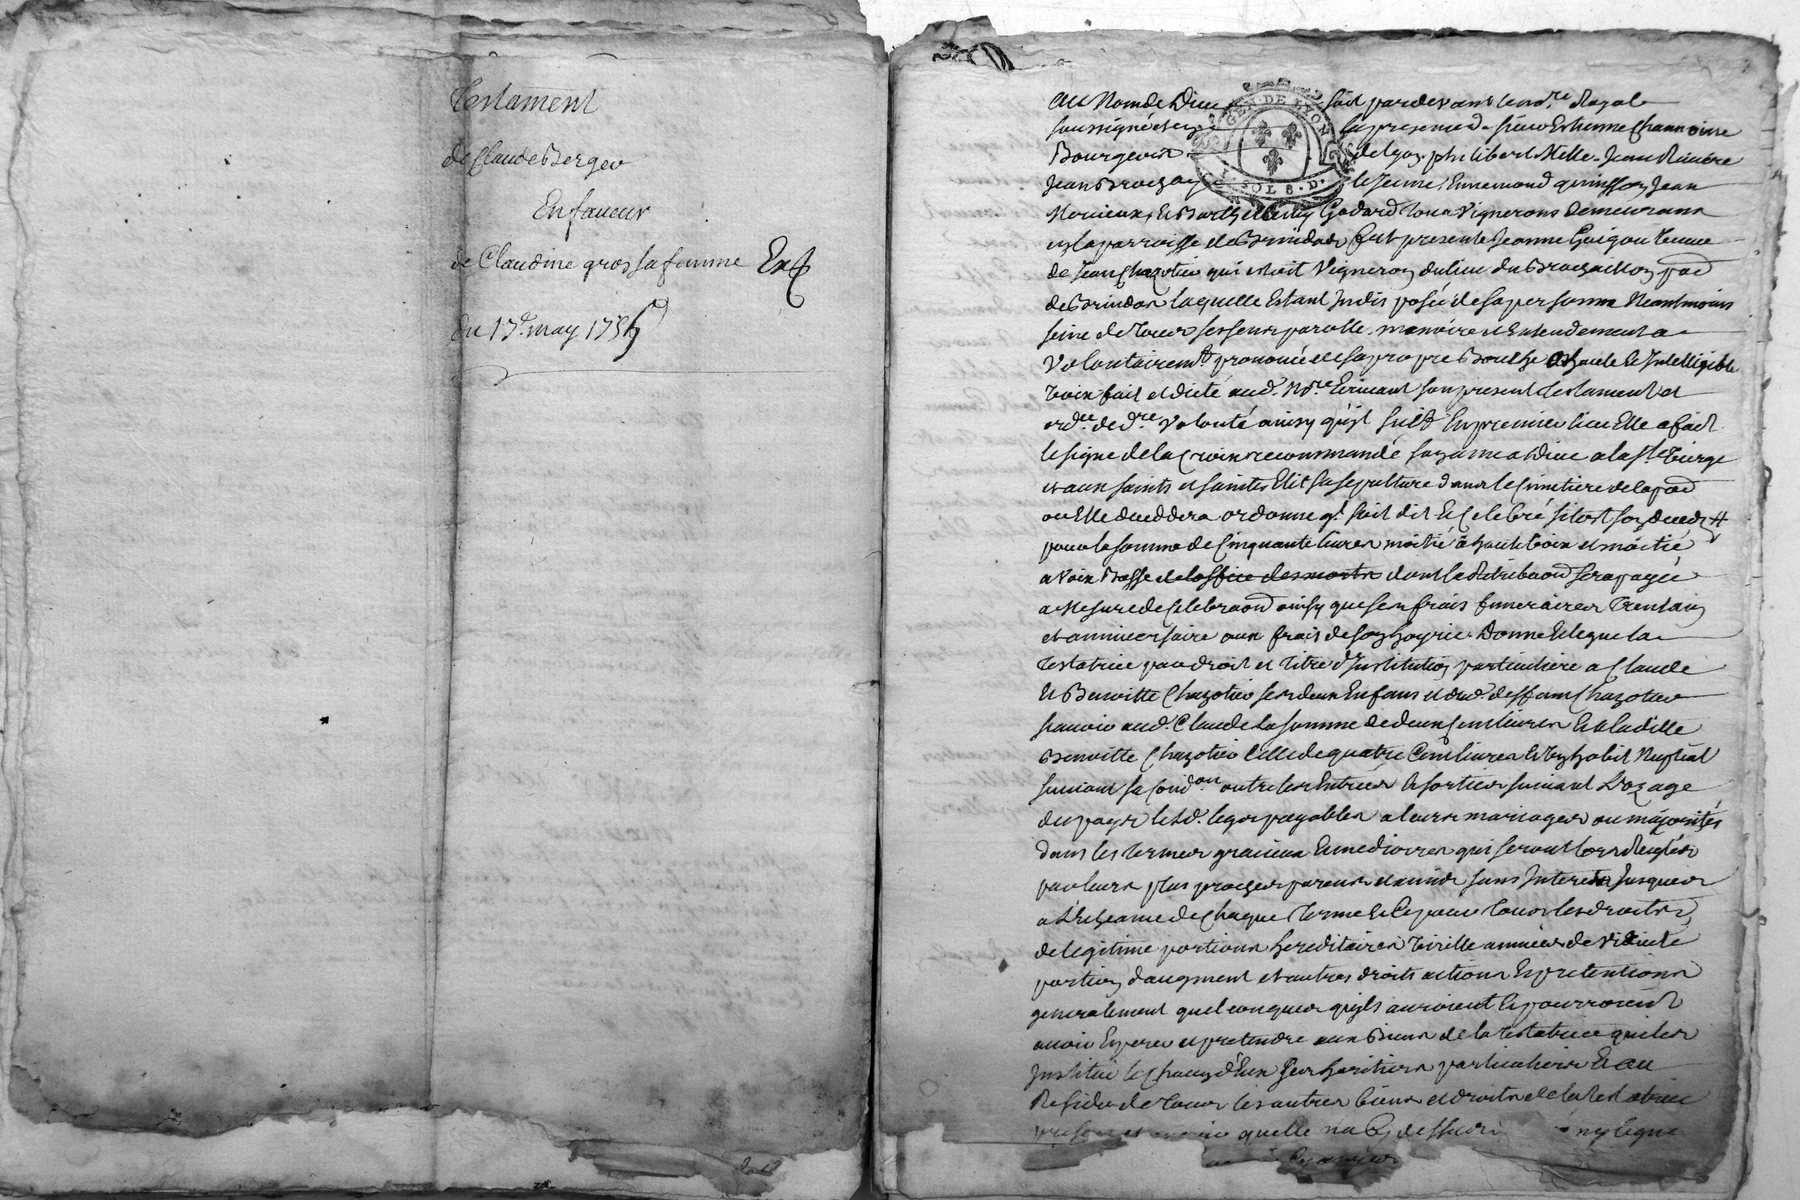 Testament
de Claude Berger
En faveur
de Claudine gros sa femme Ex
du 17e. may 1754
GEN. DE LYON
SOL 8. D.
Au Nom de Dieu soit pardevant le no.re Royal
soussigné et en la presence de sieur Estienne Chanoinne
Bourgeois de Lyon philibert Melle Jean Riviére
Jean Brochay le Jeune, Ennemond Jean
Et Barthellemy Godard tous Vignerons demeurans
en la parroisse de Brindas fut presente Jeanne Guigou veuve
de Jean Chazotier qui estoit Vigneron du lieu du par
de Brindas laquelle Estant Indisposée de sa personne Neantmoins
seine de tous ses sens parolle memoire et Entendement a
Volontairemt. prononcé de sa propre Bouche a haute Et Intelligible
voix fait et dicté aud. No.re Ecrivant son present testament et
ord.ce de d.re Volonté ainsy qu'il suit En premier lieu Elle a fait
le signe de la Croix recommandé son ame a Dieu a la s.te Vierge
et aux saints et saintes Elit sa sepulture dans le Cimetiere de la par
ou Elle deceddera ordonne q. soit dit Et Celebré sitost son deceds #
pour la somme de Cinquante livres moitié a haute voix et moitié
a voix Basse de l'office des morts dont la Retribaon sera payée
a Mesure de Celebraon ainsy que ses frais funeraires Trentain
et anniversaire aux frais de son hoyrie Donne Et legue la
testatrice par droit et titre d'Institution particuliere a Claude
Et Benoitte Chazotier ses deux Enfans et dud. deffunt Chazotier
sçavoir aud. Claude la somme de deux Cent livres Et a laditte
Benoitte Chazotier Celle de quatre Cent livres Et un habit Nuptial
suivant sa Condon outre les Entrées Et sorties suivant L'uzage
du pays lesd. legs payables a leurs mariages ou majorités
dans les termes gracieux Et mediocres qui seront lors Reglés
par leurs plus proches parens et amis sans Interets Jusques
a L'Echeance de Chaque terme Et Ce pour tous les droits
de legitime portions hereditaires virille années de viduité
portion d'augment et autres droits actions Et pretentions
generalement quelconques qu'ils auroient Et pourroient
avoir Esperer et pretendre aux Biens de la testatrice qui les
Institue Chacun d'Eux ses heritiers particuliers Et au
Residu de tous les autres biens et droits de la testatrice
quelle na Cy dessus ny legué